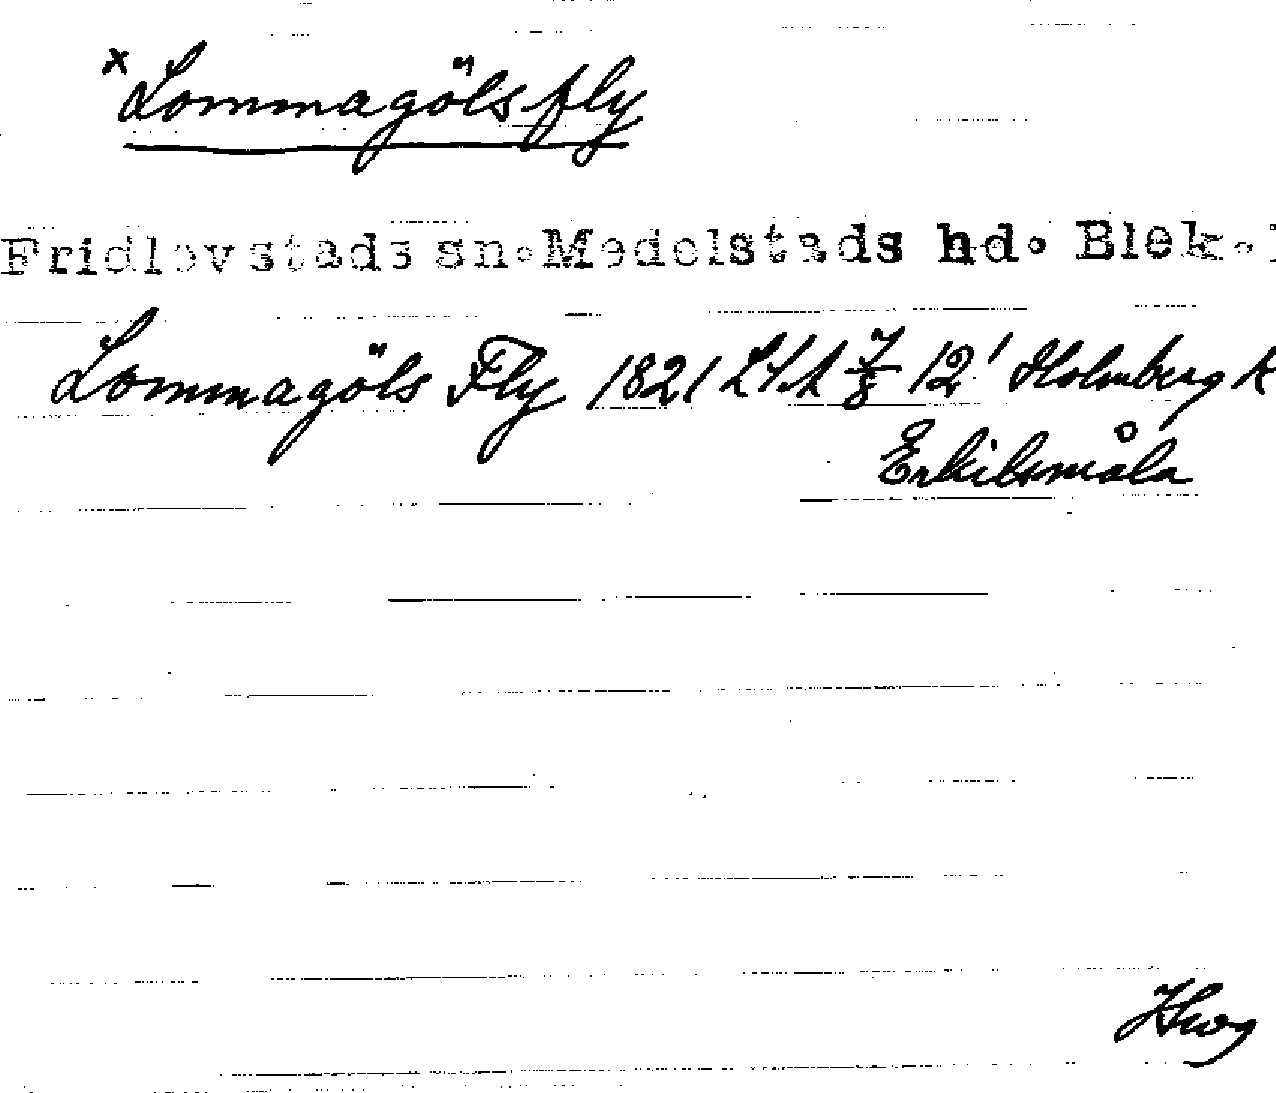 x Lommagölsfly
Fridlevstads sn. Medelstads hd. Blek.
Lommagöls Fly 1821 7/8 12' Holmberg k
Erkilsmåla